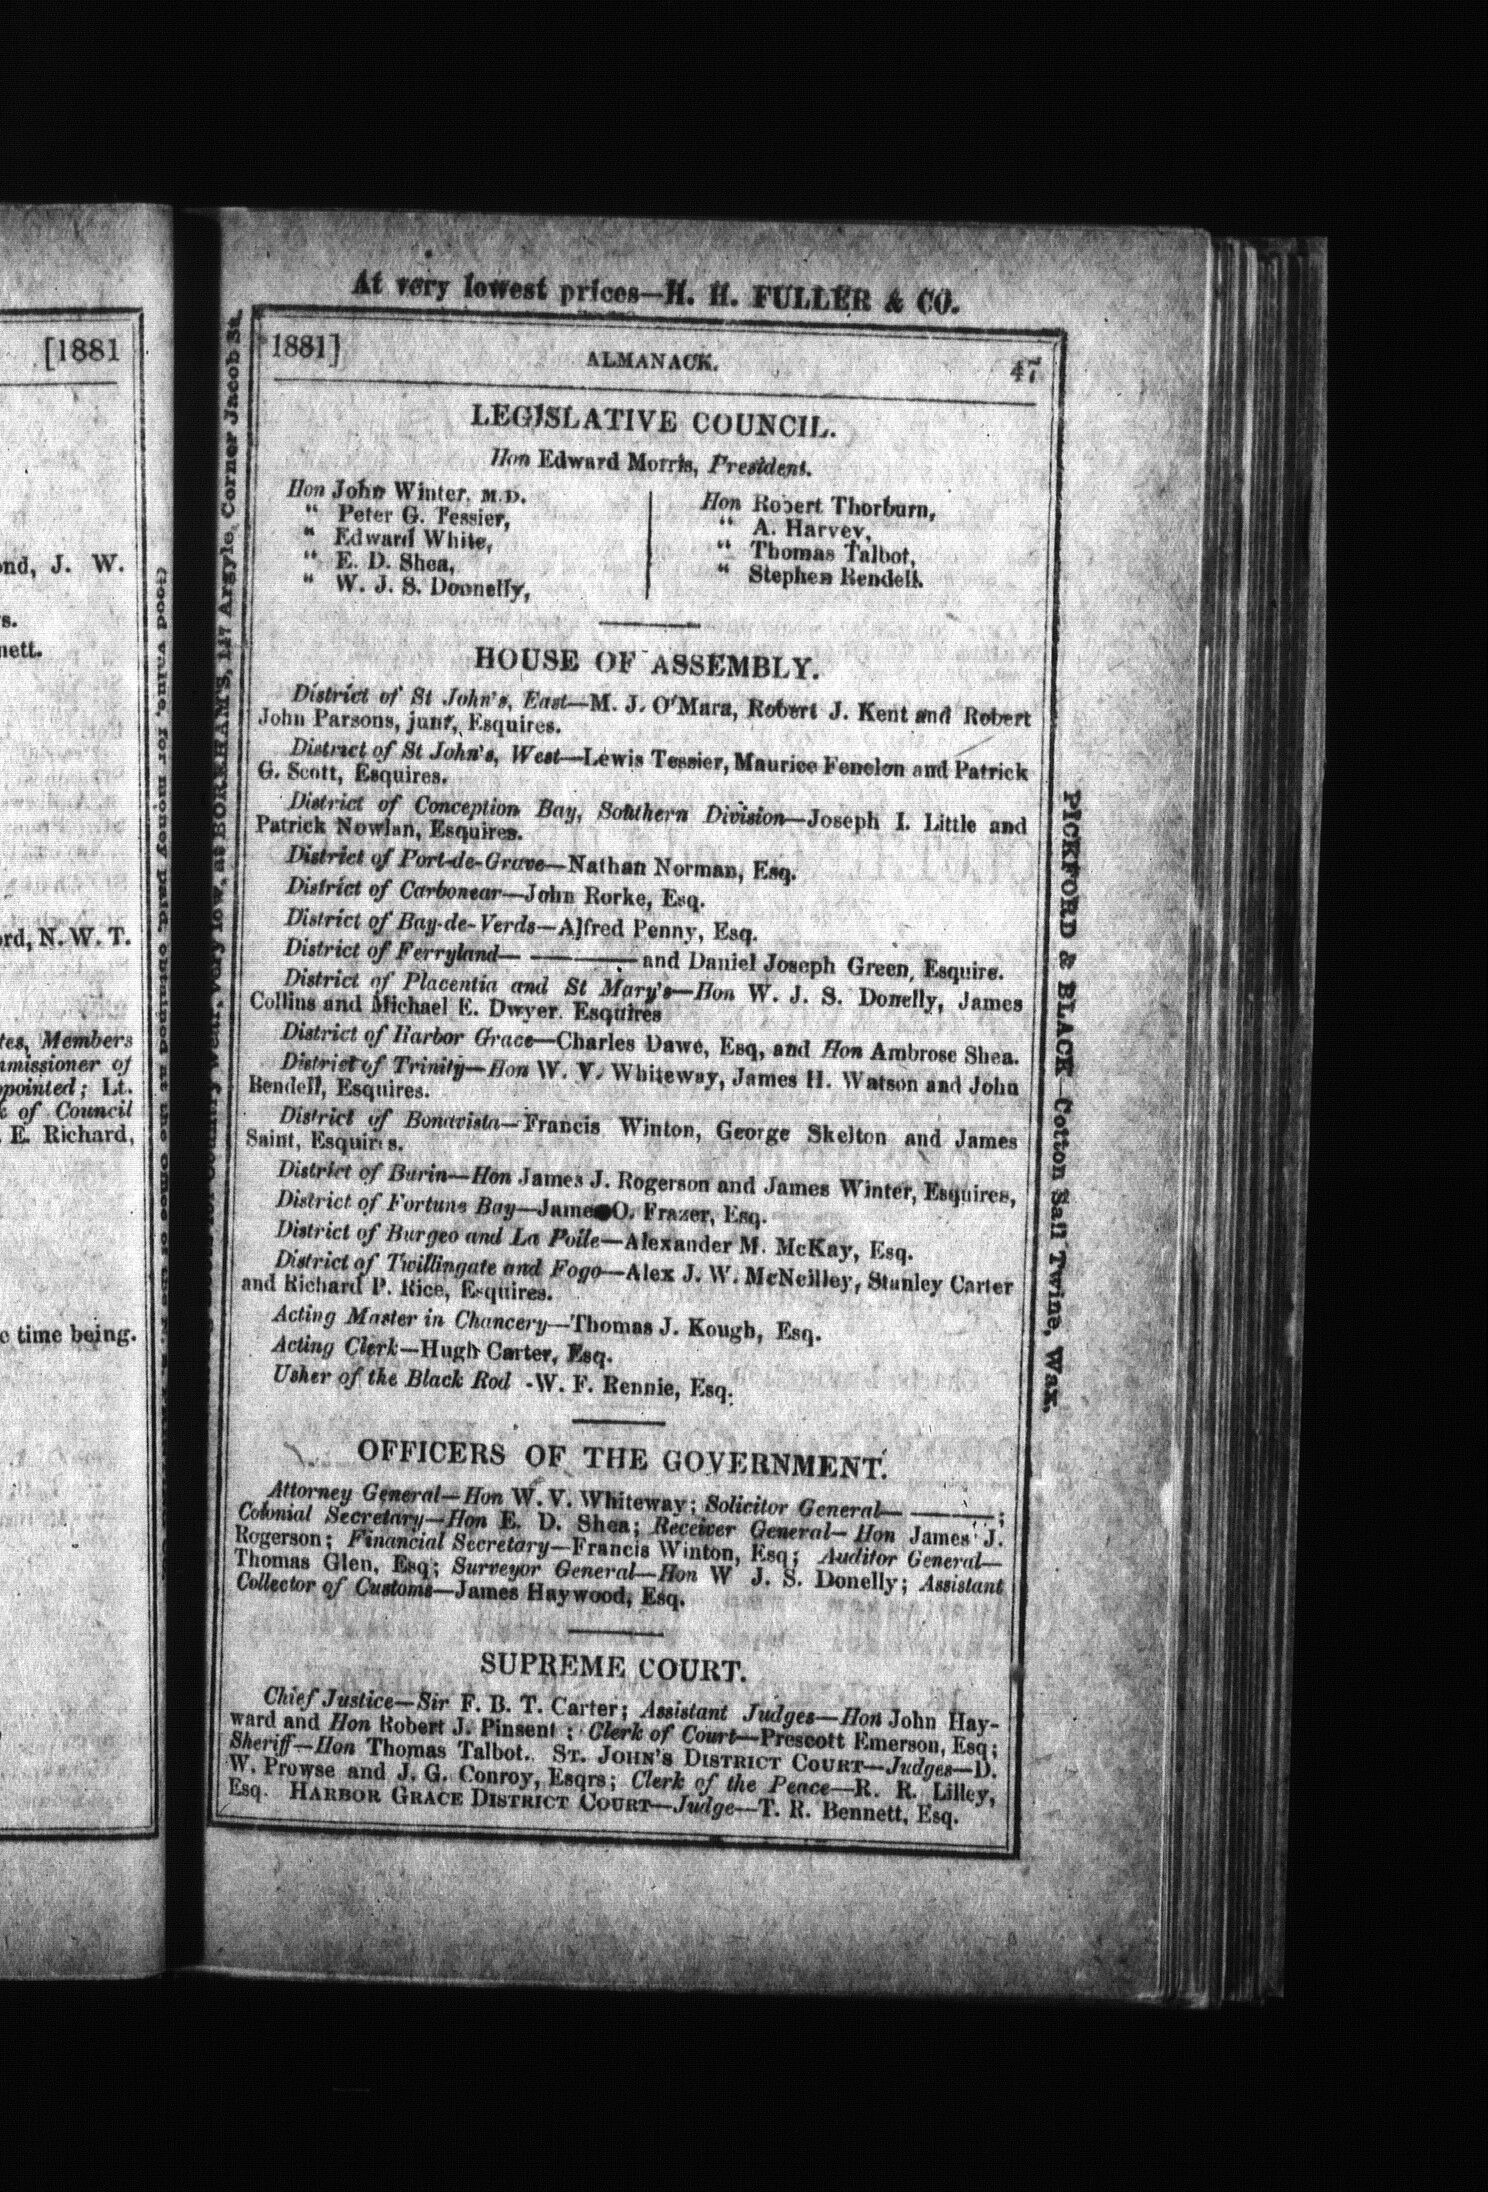 [1881
ond, J. W.
nett.
ord, N. W. T.
tes, Members
mmissioner of
ppointed; Lt.
k of Council
. E. Richard,
e time being.
Good value, for money paid, obtained at the office of
At very lowest prices—H. H. FULLER & CO.
Country wear, very low, at BORKHAM'S, 147 Argyle, Corner Jacob St.
1881]
ALMANACK.
47
LEGISLATIVE COUNCIL.
Hon Edward Morris, President.
Hon John Winter, M.D.
" Peter G. Tessier,
" Edward White,
" E. D. Shea,
" W. J. S. Donnelly,
Hon Robert Thorburn,
" A. Harvey,
" Thomas Talbot,
" Stephen Rendell.
HOUSE OF ASSEMBLY.
District of St John's, East—M. J. O'Mara, Robert J. Kent and Robert
John Parsons, junr, Esquires.
District of St John's, West—Lewis Tessier, Maurice Fenelon and Patrick
G. Scott, Esquires.
District of Conception Bay, Southern Division—Joseph I. Little and
Patrick Nowlan, Esquires.
District of Port-de-Grave—Nathan Norman, Esq.
District of Carbonear—John Rorke, Esq.
District of Bay-de-Verds—Alfred Penny, Esq.
District of Ferryland— ———— and Daniel Joseph Green, Esquire.
District of Placentia and St Mary's—Hon W. J. S. Donelly, James
Collins and Michael E. Dwyer. Esquires
District of Harbor Grace—Charles Dawe, Esq, and Hon Ambrose Shea.
District of Trinity—Hon W. V. Whiteway, James H. Watson and John
Rendell, Esquires.
District of Bonavista—Francis Winton, George Skelton and James
Saint, Esquires.
District of Burin—Hon James J. Rogerson and James Winter, Esquires,
District of Fortune Bay—James O. Frazer, Esq.
District of Burgeo and La Poile—Alexander M. McKay, Esq.
District of Twillingate and Fogo—Alex J. W. McNeilley, Stanley Carter
and Richard P. Rice, Esquires.
Acting Master in Chancery—Thomas J. Kough, Esq.
Acting Clerk—Hugh Carter, Esq.
Usher of the Black Rod -W. F. Rennie, Esq.
OFFICERS OF THE GOVERNMENT.
Attorney General—Hon W. V. Whiteway; Solicitor General— ————;
Colonial Secretary—Hon E. D. Shea; Receiver General—Hon James J.
Rogerson; Financial Secretary—Francis Winton, Esq; Auditor General—
Thomas Glen, Esq; Surveyor General—Hon W J. S. Donelly; Assistant
Collector of Customs—James Haywood, Esq.
SUPREME COURT.
Chief Justice—Sir F. B. T. Carter; Assistant Judges—Hon John Hay-
ward and Hon Robert J. Pinsent; Clerk of Court—Prescott Emerson, Esq;
Sheriff—Hon Thomas Talbot. ST. JOHN'S DISTRICT COURT—Judges—D.
W. Prowse and J. G. Conroy, Esqrs; Clerk of the Peace—R. R. Lilley,
Esq. HARBOR GRACE DISTRICT COURT—Judge—T. R. Bennett, Esq.
PICKFORD & BLACK—Cotton Sail Twine, Wax.